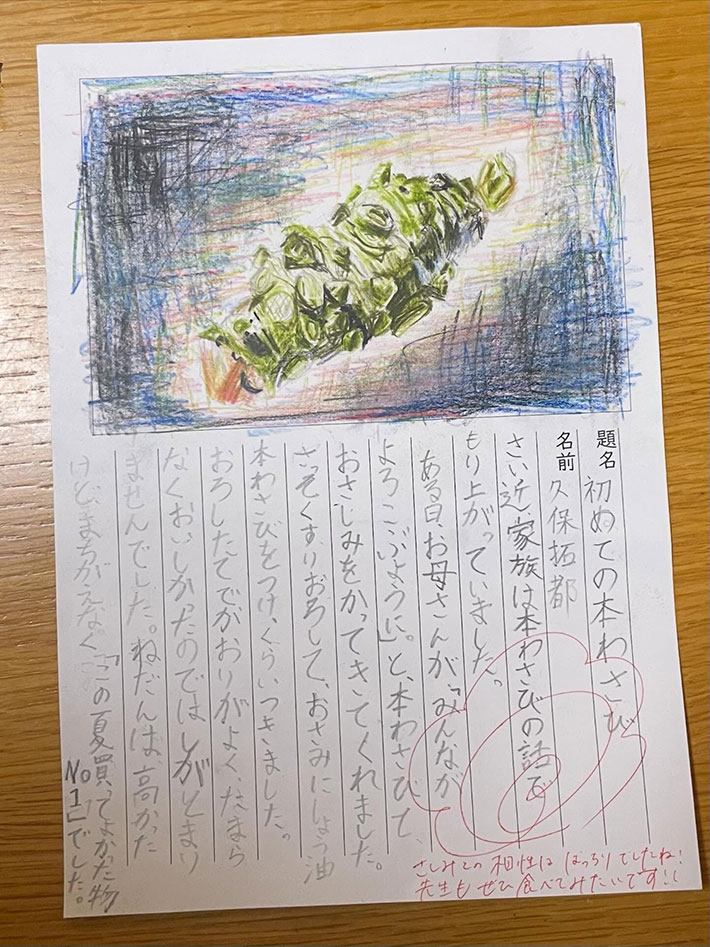 題名 初めての本わさび
名前 久保拓都
さい近、家族は本わさびの話で
もり上がっていました。
ある日、お母さんが、「みんなが
よろこぶように」。と、本わさびて、
おさしみをかってきてくれました。
さっそくすりおろして、おさみにしょう油
本わさびをつけ、くらいつきました。
おろしたてでがおりがよく、たまら
なくおいしかったのではしがとまり
ませんでした。ねだんは、高かった
けど、まちがえなく、「この夏買ってよかった物
No1」でした。
さしみとの相性はばっちりでしたね!
先生もぜひ食べてみたいです!!